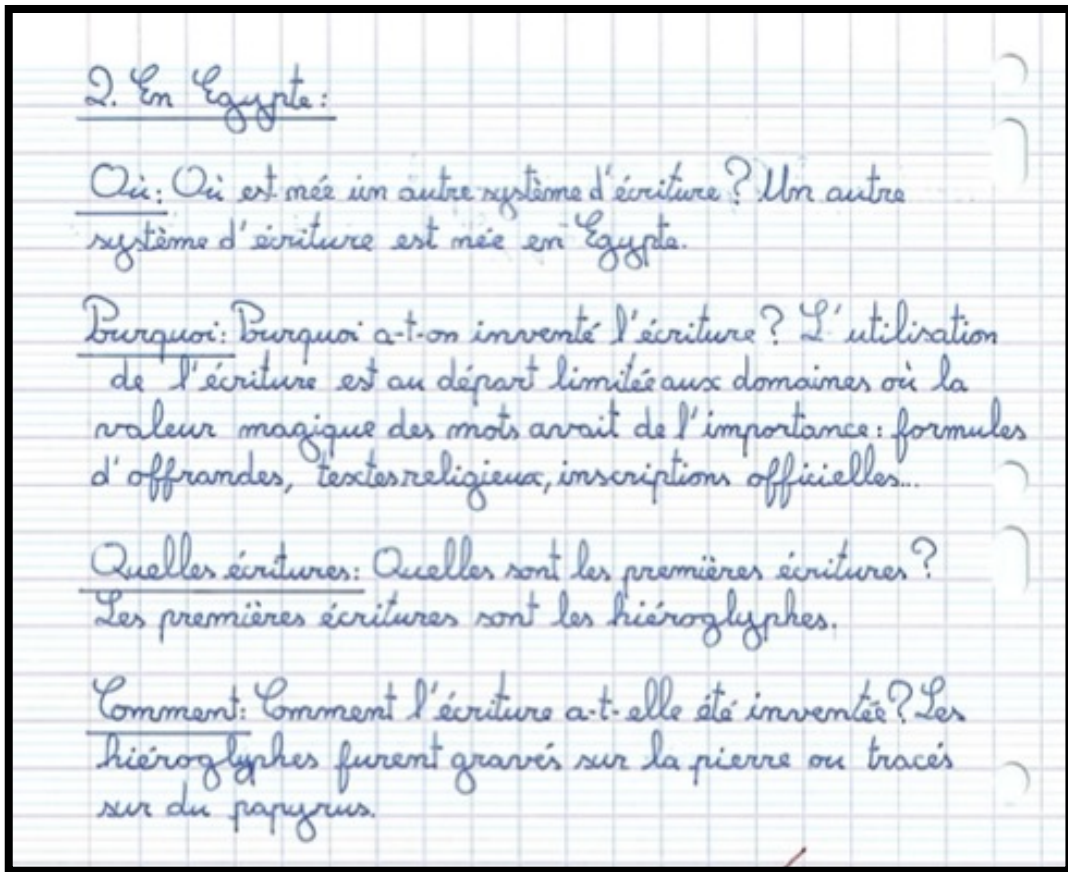 2. En Egypte:
Où: Où est née un autre système d'écriture? Un autre
système d'écriture est née en Egypte.
Pourquoi: Pourquoi a-t-on inventé l'écriture? L'utilisation
de l'écriture est au départ limitée aux domaines où la
valeur magique des mots avait de l'importance: formules
d'offrandes, textes religieux, inscriptions officielles...
Quelles écritures: Quelles sont les premières écritures?
Les premières écritures sont les hiéroglyphes.
Comment: Comment l'écriture a-t-elle été inventée? Les
hiéroglyphes furent gravés sur la pierre ou tracés
sur du papyrus.